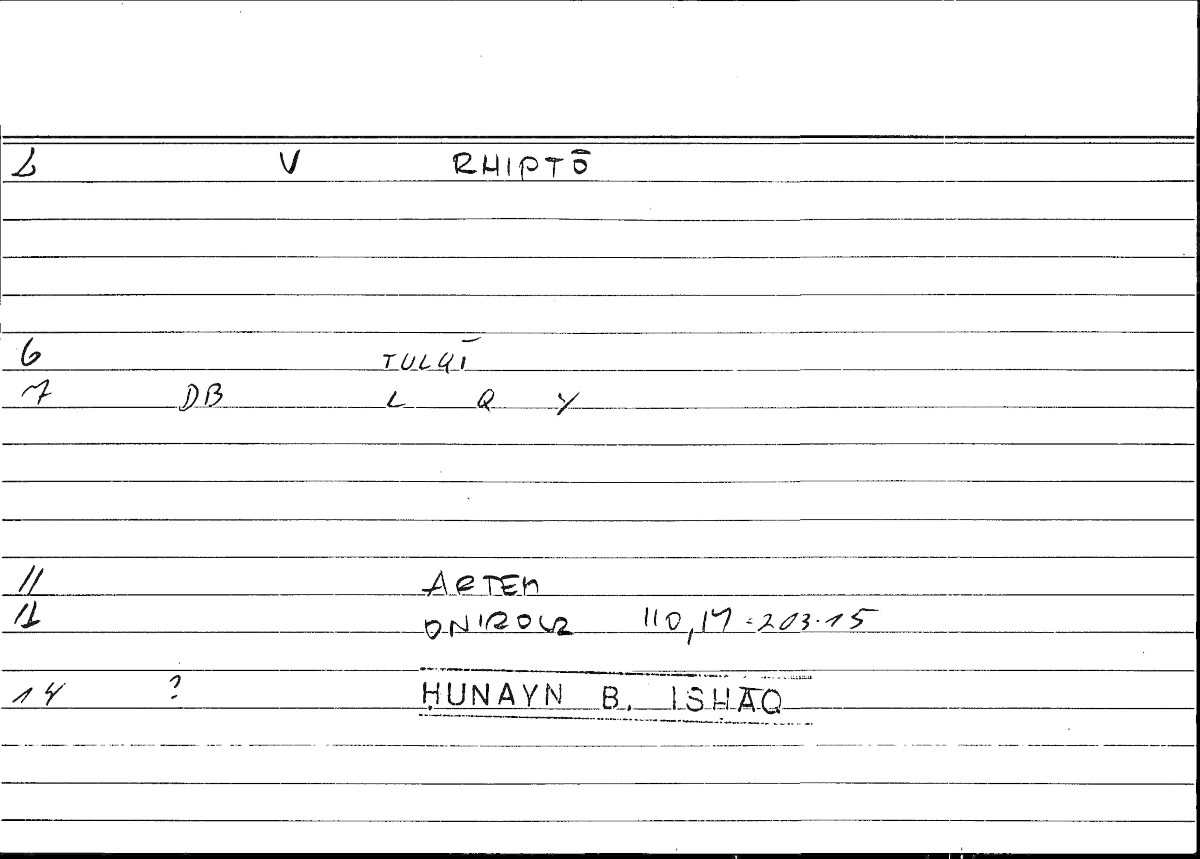 1 V RHIPTŌ
6 TULQĪ
7 DB L Q Y
11 ARTEM
12 ONIROCR 110,17=203.15
14 ? ḤUNAYN B. ISḤĀQ